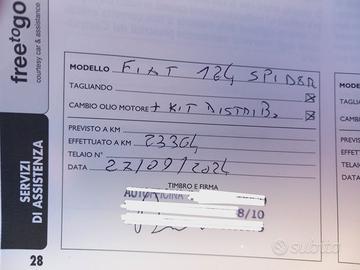 freetogo
courtesy car & assistance
SERVIZI
DI ASSISTENZA
28
MODELLO FIAT 124 SPIDER
TAGLIANDO
CAMBIO OLIO MOTORE + KIT DISTRIB.
PREVISTO A KM
EFFETTUATO A KM 23304
TELAIO N°
DATA 27/09/2024
TIMBRO E FIRMA
8/10
MODE
TAGLIA
CAMBI
PREVI
EFFET
TELAI
DATA
subito